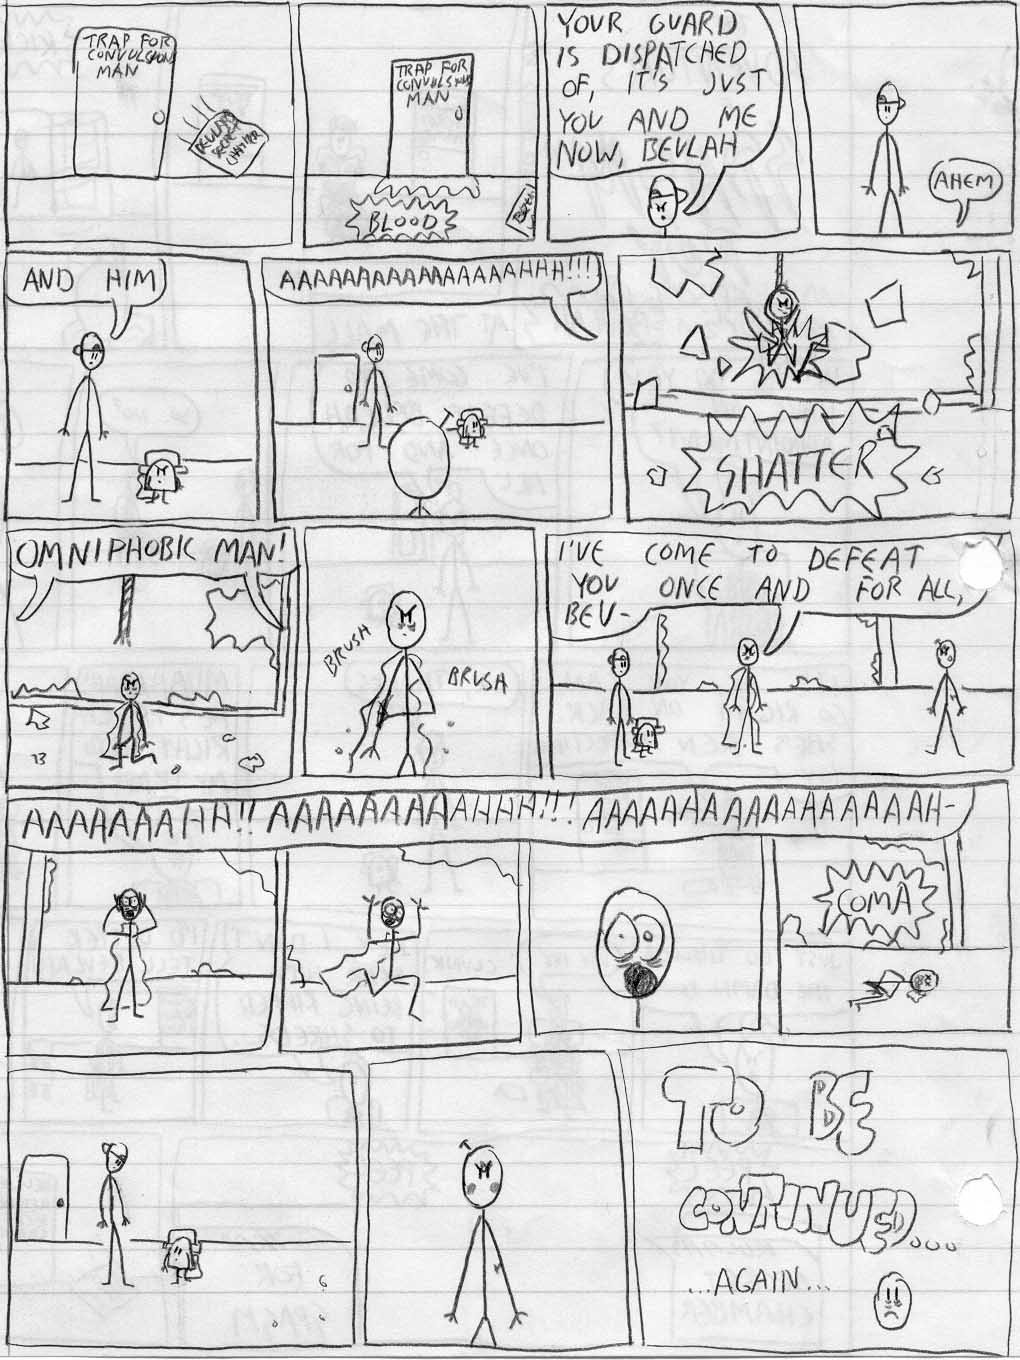 TRAP FOR
CONVULSIONS
MAN
TRAP FOR
CONVULSIONS
MAN
BLOOD
YOUR GUARD
IS DISPATCHED
OF, IT'S JUST
YOU AND ME
NOW, BEULAH
AHEM
AND HIM
AAAAAAAAAAAAAAAAHHH!!!
SHATTER
OMNIPHOBIC MAN!
BRUSH
BRUSH
I'VE COME TO DEFEAT
YOU ONCE AND FOR ALL,
BEU-
AAAAAAAHH!! AAAAAAAAAHHH!!! AAAAAHAAAAAHAAAAAAH-
COMA
TO BE
CONTINUED...
...AGAIN...